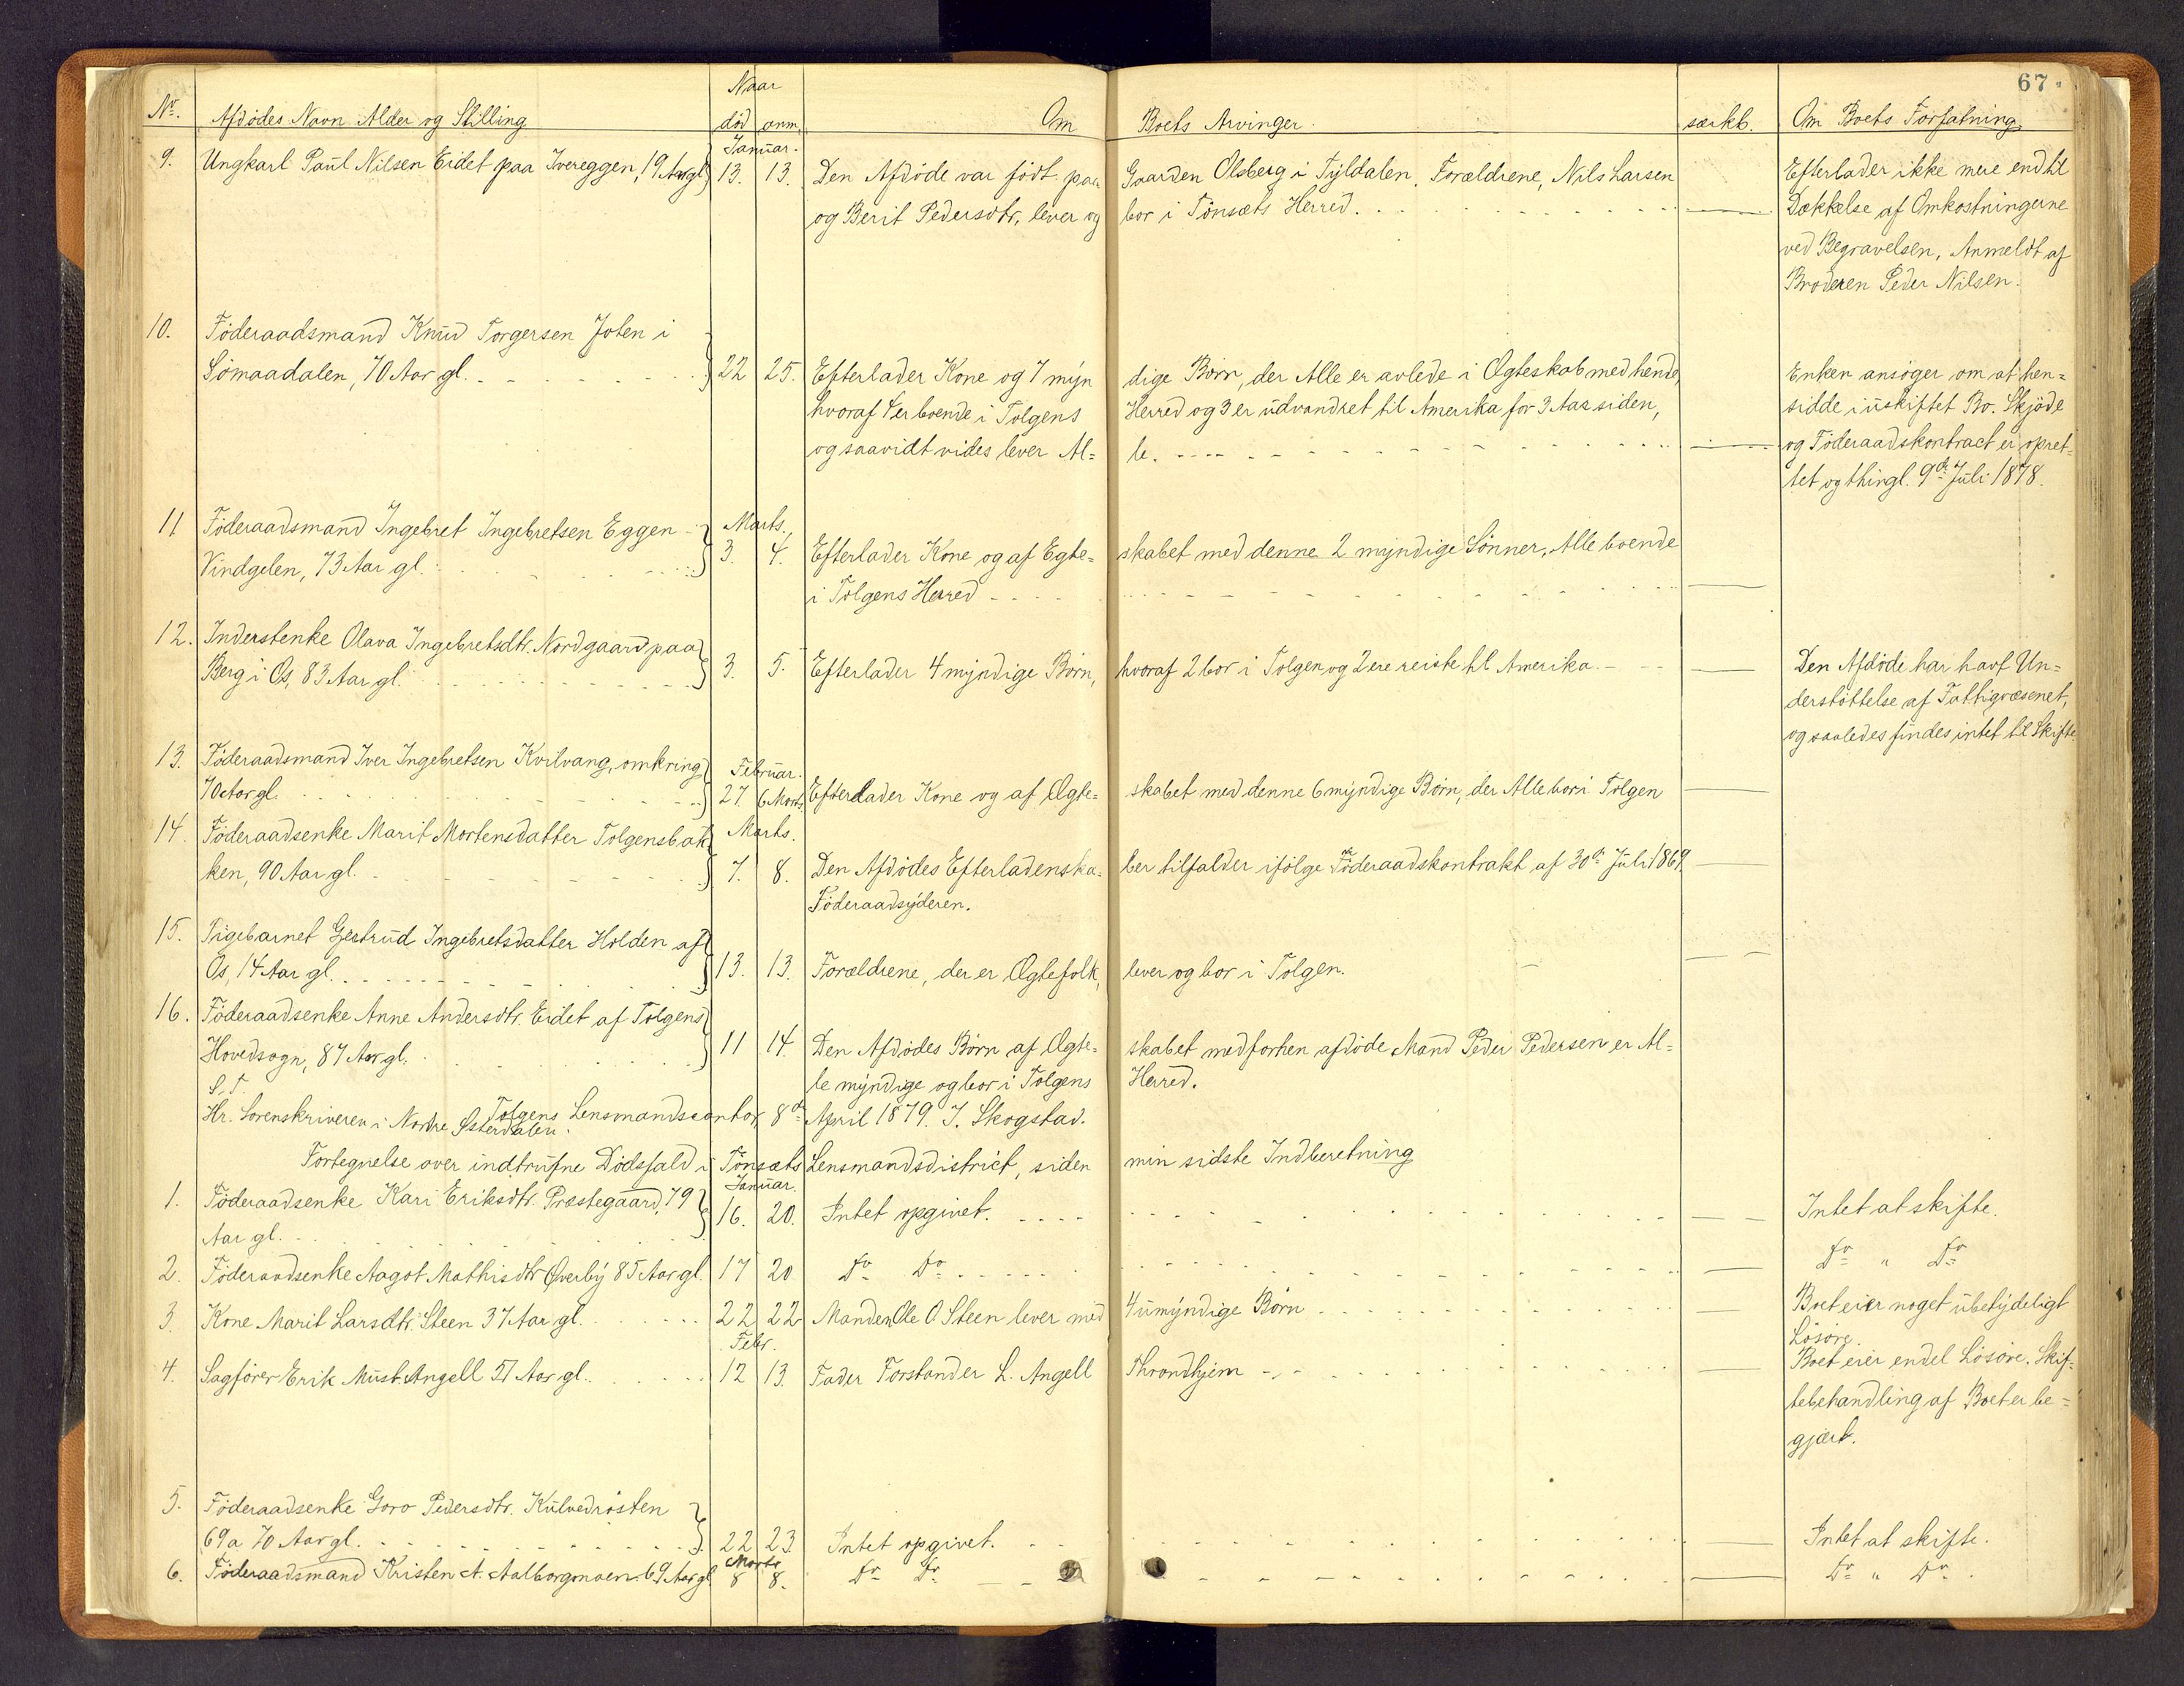 67.
Naar
No. Afdødes Navn Alder og Stilling død anm. Om Boets Arvinger. særkb. Om Boets Forfatning
Januar.
9. Ungkarl Paul Nilsen Eidet paa Ivereggen, 19 Aar gl. 13. 13. Den Afdøde var født paa Gaarden Olsberg i Tyldalen. Forældrene, Nils Larsen Efterlader ikke mere end til
og Berit Pedersdtr, lever og bor i Tønsæts Herred. Dækkelse af Omkostningerne
ved Begravelsen, Anmeldt af
Broderen Peder Nilsen.
10. Föderaadsmand Knud Torgersen Joten i
Sömaadalen, 70 Aar gl. 22 25. Efterlader Kone og 7 myn dige Børn, der Alle er avlede i Ægteskab med hende, Enken ansøger om at hen=
hvoraf 4 er boende i Tolgens Herred og 3 er udvandret til Amerika for 3 Aar siden, sidde i uskiftet Bo. Skjöde
og saavidt vides lever Al= le. og Föderaadskontract er opret=
tet og thingl. 9de Juli 1878.
11 Föderaadsmand Ingebret Ingebretsen Eggen Marts.
Vindgelen, 73 Aar gl. 3. 4. Efterlader Kone og af Egte= skabet med denne 2 myndige Sønner, Alle boende
i Tolgens Herred
12. Inderstenke Olava Ingebretsdtr. Nordgaard paa
Berg i Os, 83 Aar gl. 3. 5. Efterlader 4 myndige Børn, hvoraf 2 bor i Tolgen og 2 ere reiste til Amerika. Den Afdøde har havt Un=
derstöttelse af Fattigvæsenet,
og saaledes findes intet til Skifte.
13. Föderaadsmand Iver Ingebretsen Kvilvang, omkring Februar.
70 Aar gl. 27 6 Marts. Efterlader Kone og af Ægte= skabet med denne 6 myndige Børn, der Alle bor i Tolgen
14. Föderaadsenke Marit Mortensdatter Tolgensbak Marts.
ken, 90 Aar gl. 7. 8. Den Afdødes Efterladenska= ber tilfalder ifølge Föderaadskontrakt af 30de Juli 1869.
Föderaadsyderen.
15. Pigebarnet Gertrud Ingebretsdatter Holden af
Os, 14 Aar gl. 13. 13. Forældrene, der er Ægtefolk, lever og bor i Tolgen.
16. Föderaadsenke Anne Andersdtr. Eidet af Tolgens
Hovedsogn, 87 Aar gl. 11 14. Den Afdødes Børn af Ægte= skabet med forhen afdøde Mand Peder Pedersen er Al=
le myndige og bor i Tolgens Herred.
S. T.
Hr. Sorenskriveren i Nordre Østerdalen. Tolgens Lensmandscontor, 8de April 1879. J. Skogstad.
Fortegnelse over indtrufne Dødsfald i Tönsæts Lensmandsdistrict, siden min sidste Indberetning
Januar.
1. Föderaadsenke Kari Eriksdtr. Præstegaard, 79 16. 20. Intet opgivet. Intet at skifte.
Aar gl.
2. Föderaadsenke Aagot Mathisdtr Øverby 85 Aar gl. 17 20 Do Do Do " Do
3. Kone Marit Larsdtr. Steen 37 Aar gl. 22 22 Manden Ole O. Steen lever med 4 umyndige Børn Boet eier noget ubetydeligt
Løsøre.
Febr.
4. Sagfører Erik Must Angell 51 Aar gl. 12 13. Fader Forstander L. Angell Throndhjem Boet eier endel Løsøre. Skif=
tebehandling af Boet er be=
gjært.
5. Föderaadsenke Goro Pedersdtr. Kulvedrøsten
69 a 70 Aar gl. 22 23 Intet opgivet. Intet at skifte.
Marts
6. Föderaadsmand Kristen A. Aalborgmoen. 69 Aar gl 8 8. Do Do Do " Do.